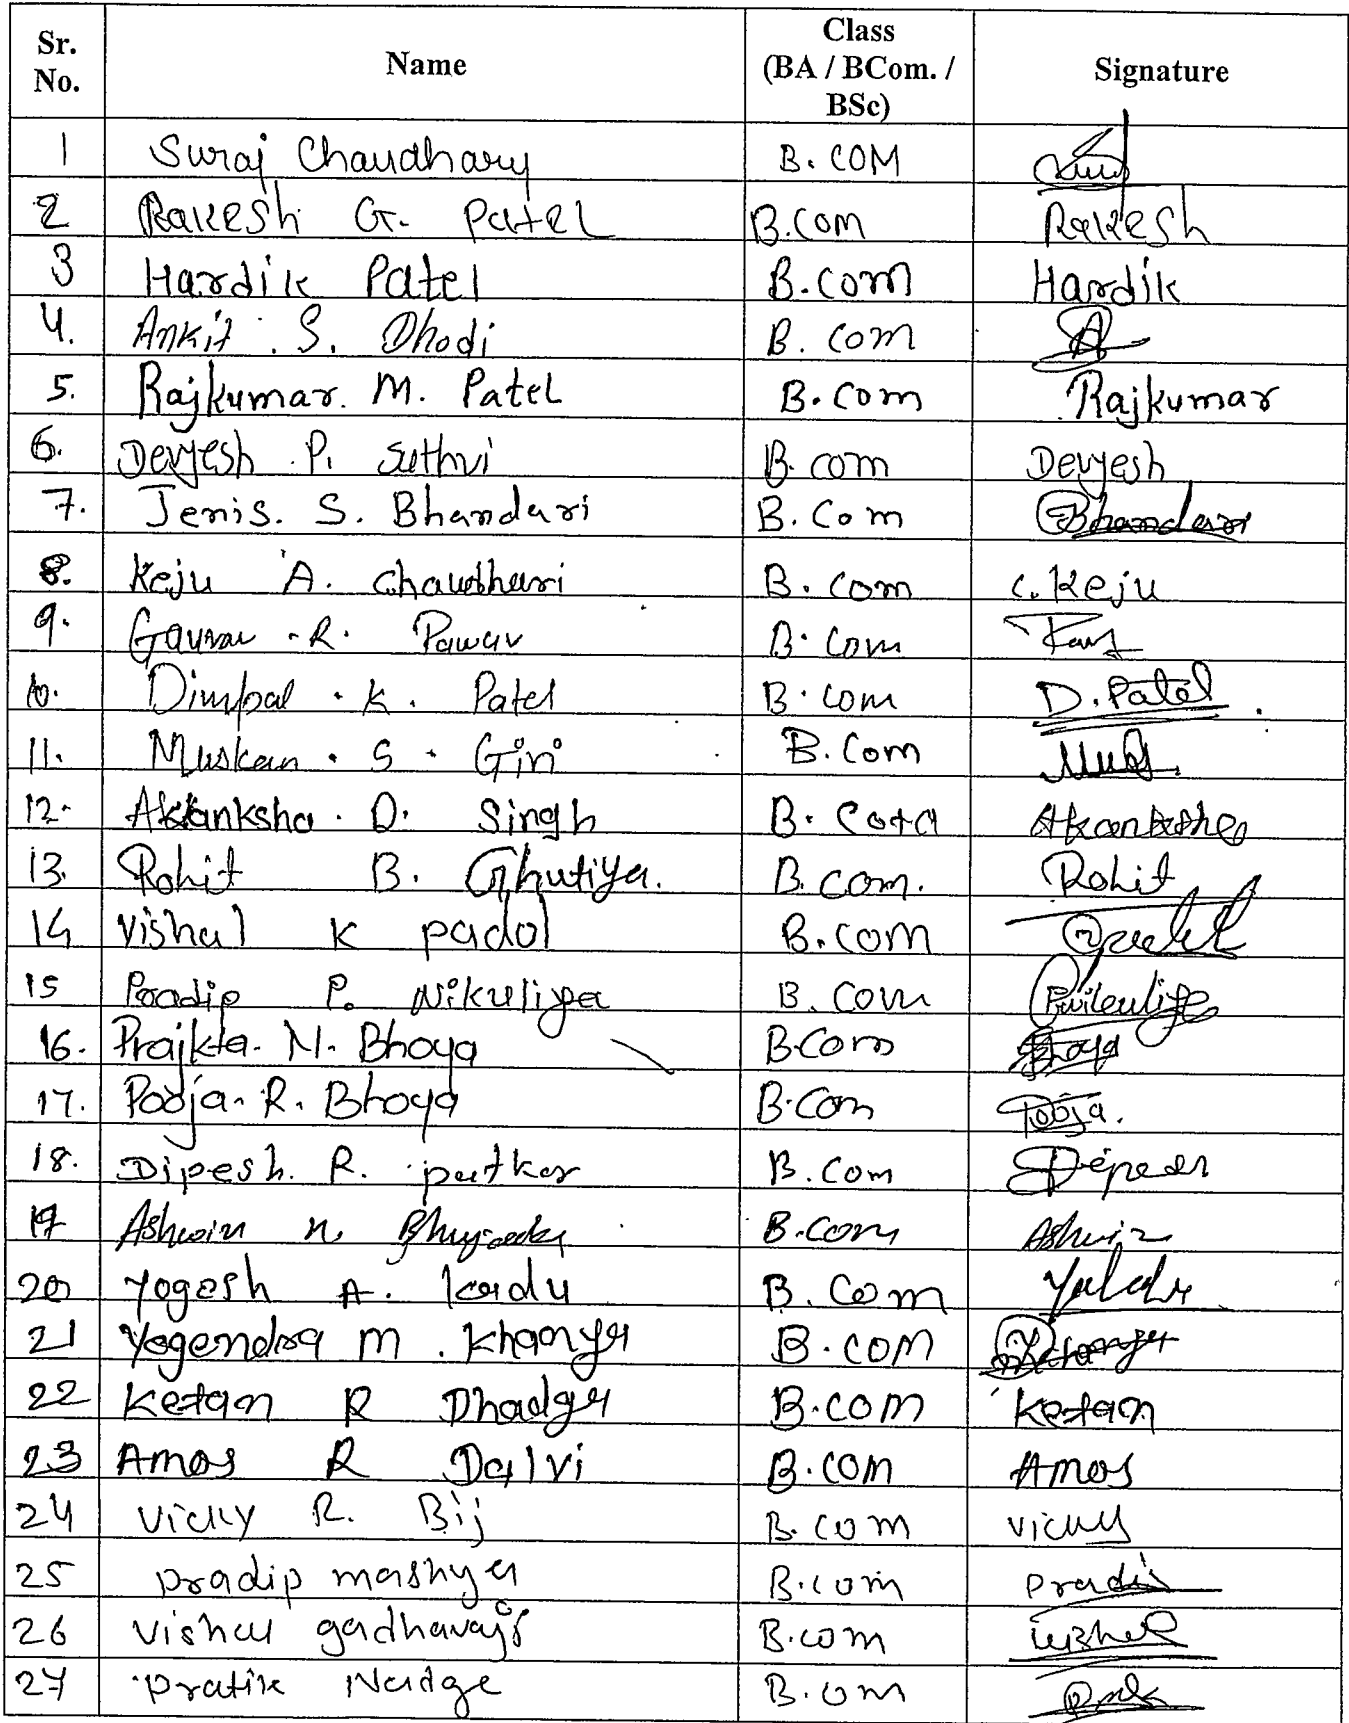 Sr. No. Name Class (BA / BCom. / BSc) Signature
1 Suraj Chaudhary B. COM
2 Rakesh G. Patel B.com Rakesh
3 Hardik Patel B.com Hardik
4. Ankit . S. Dhodi B. com A
5. Rajkumar. M. Patel B. Com Rajkumar
6. Devyesh . P. Suthri B. com Devyesh
7. Jenis. S. Bhandari B. Com Bhandari
8. Keju A. Chaudhari B. com C. Keju
9. Gaurav . R. Pawar B. Com
10. Dimpal . K. Patel B. com D. Patel
11. Muskan . S . Giri B. Com
12. Akanksha . D. Singh B. Com Akanksha
13. Rohit B. Ghutiya. B. com. Rohit
14 Vishal K padol B. com
15 Pradip P. Nikuliya B. Com
16. Prajkta. N. Bhoya B.Com Bhoya
17. Pooja. R. Bhoya B.Com Pooja.
18. Dipesh. R. putkar B. Com
19 Ashwin n. B.com Ashwin
20 Yogesh A. kadu B. Com
21 Yogendra M . Khanya B. com
22 Ketan R Dhadga B.com Ketan
23 Amos R Dalvi B.com Amos
24 Vicky R. Bij B. com Vicky
25 pradip mashya B.com pradip
26 vishal B.com vishal
27 pratik Nadge B.com